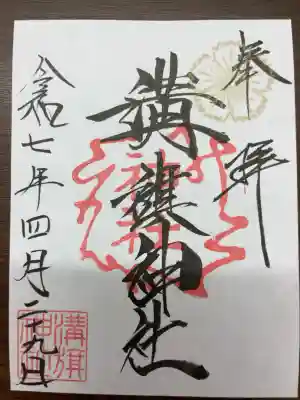 奉拝
溝旗神社
令和七年四月二十九日
溝旗
神社